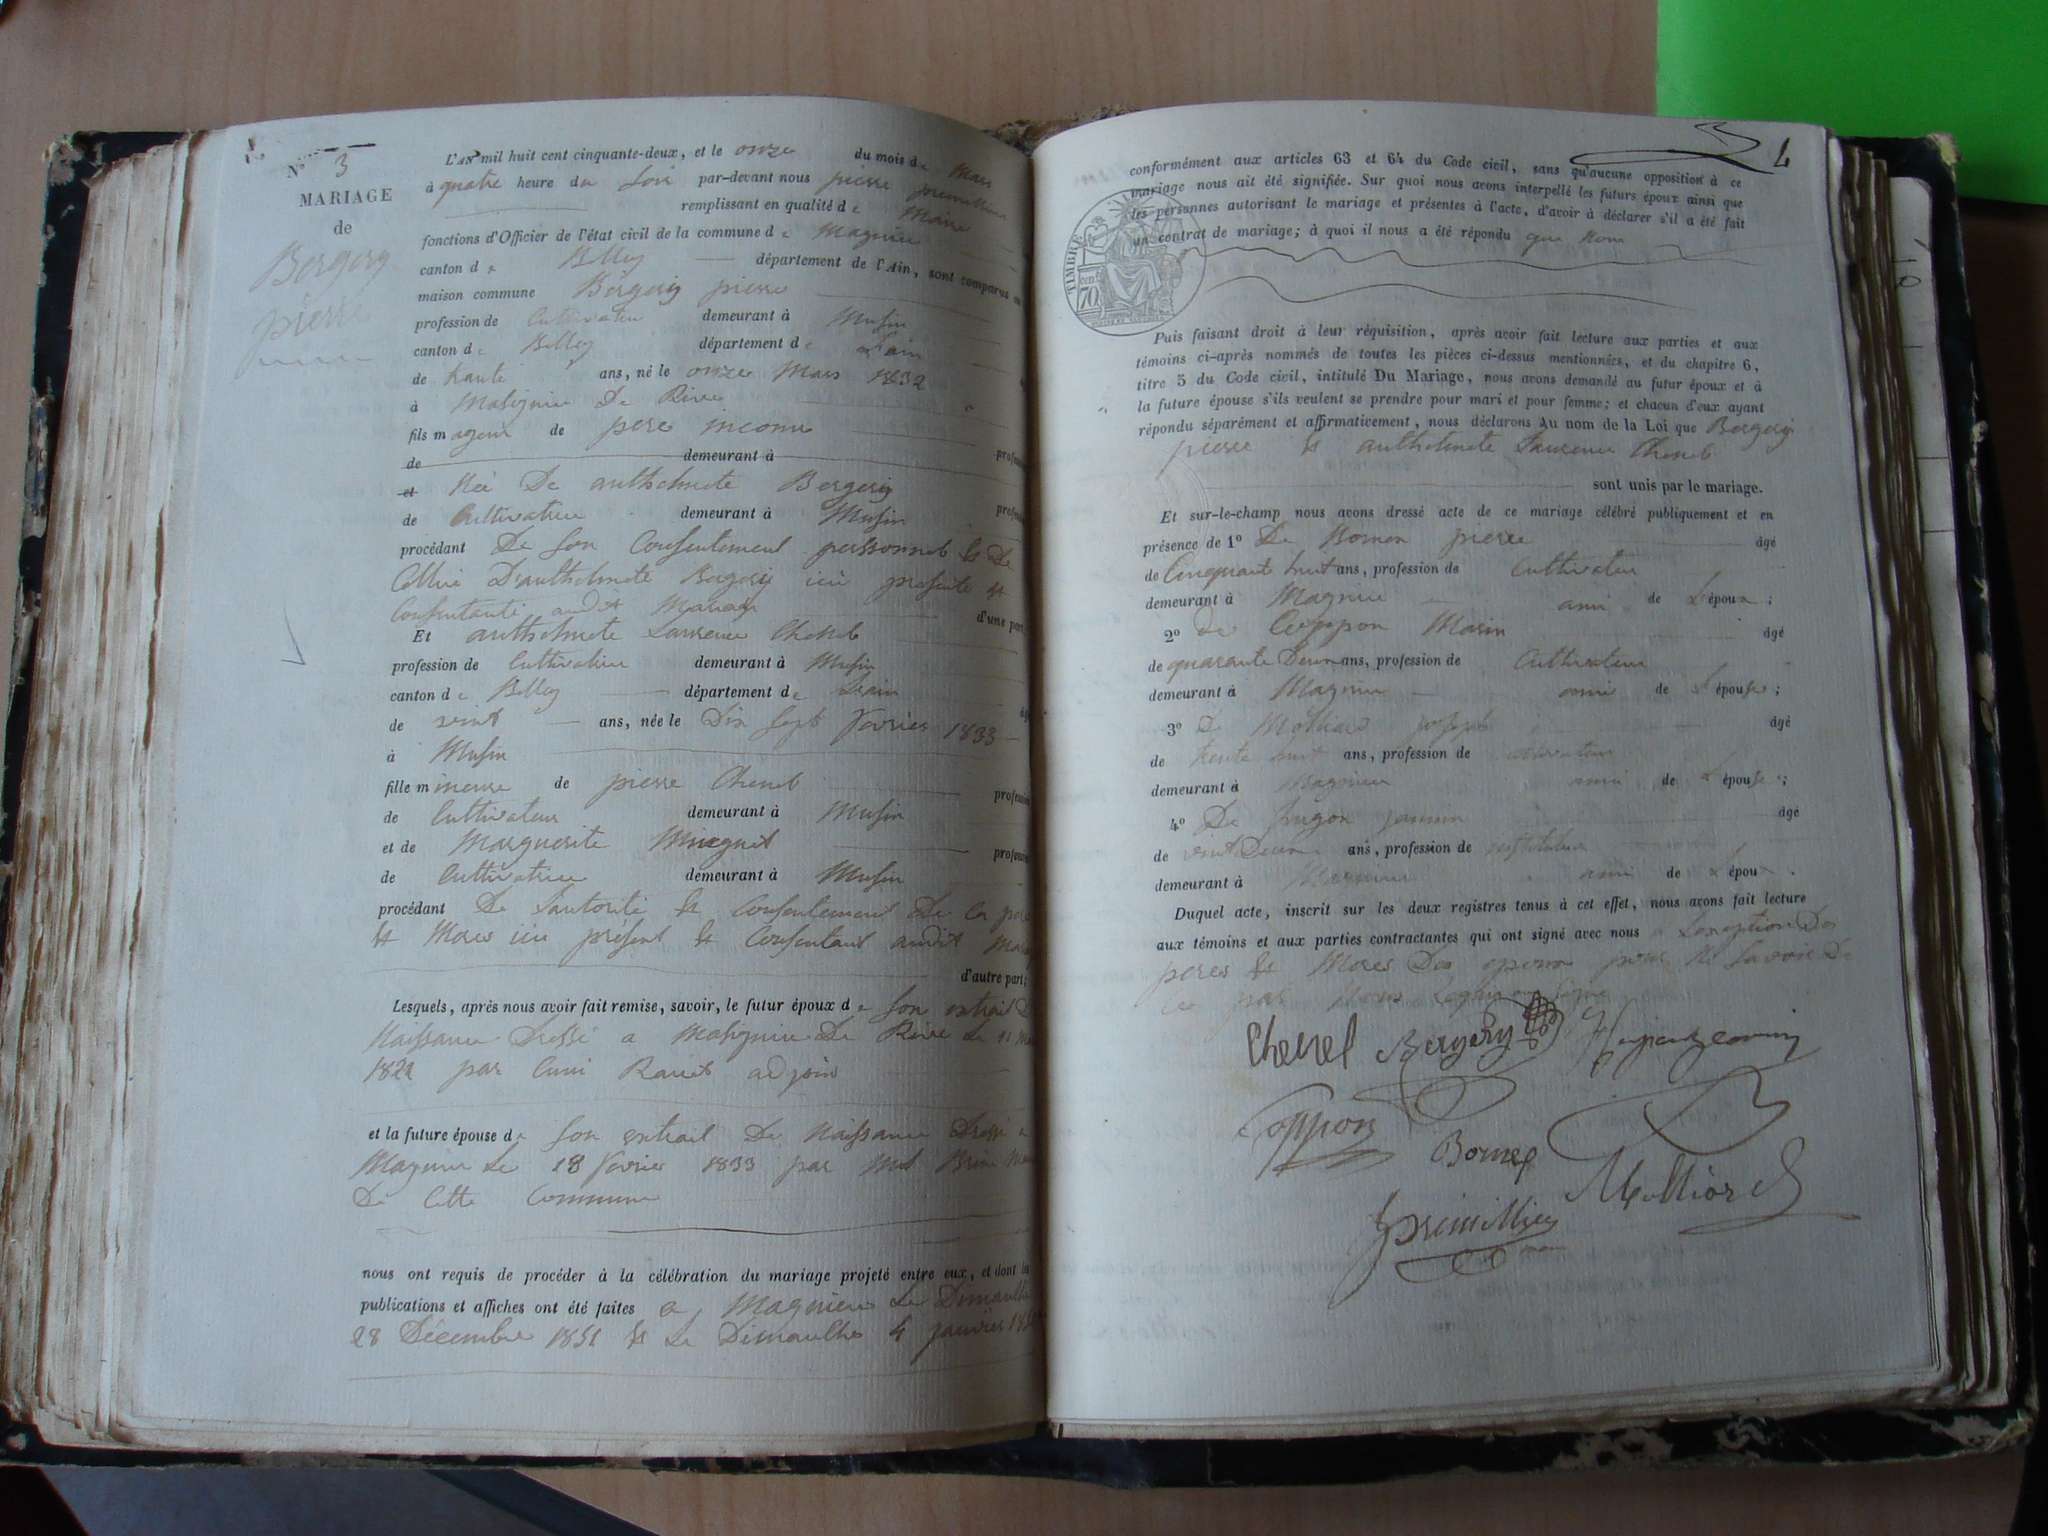 Nº 3
MARIAGE
de
Bergery
pierre
L'AN mil huit cent cinquante-deux, et le onze du mois de Mars
à quatre heure du Soir par-devant nous pierre premillieu
remplissant en qualité de Maire
fonctions d'Officier de l'état civil de la commune de Magnieu
canton de Belley département de l'Ain, sont comparus en
maison commune Bergery pierre
profession de Cultivateur demeurant à Musin
canton de Belley département de Lain
de trante ans, né le onze Mars
à Massignieu De Rive
fils mageur de pere inconu
de demeurant à profession
et Née De anthelmete Bergery
de Cultivatrice demeurant à Musin profession
procédant De Son Consentement perssonnel et De
Cellui Danthelmete Bergery ici presente et
Consentante audit Mariage d'une part,
Et anthelmete Laurence Chenel
profession de Cultivatrice demeurant à Musin
canton de Belley département de Lain
de vint ans, née le Dix Sept fevrier 1833
à Musin
fille mineure de pierre Chenel
de Cultivateur demeurant à Musin profession
et de Marguerite
de Cultivatrice demeurant à Musin profession
procédant De Lautorité et Consentement De Ces pere
et Mere ici présent et Consentant audit
d'autre part;
Lesquels, après nous avoir fait remise, savoir, le futur époux de Son extrait De
Naissance Dressé a Massignieu De Rive Le 11
par adjoin
et la future épouse de Son extrait De Naissance Dressé a
Magnieu Le 18 fevrier 1833 par
De Cette Commune
nous ont requis de procéder à la célébration du mariage projeté entre eux, et dont les
publications et affiches ont été faites a Magnieu Le Dimanche
28 Décembre 1851 et Le Dimanche 4 janvier
4
conformément aux articles 63 et 64 du Code civil, sans qu'aucune opposition à ce
mariage nous ait été signifiée. Sur quoi nous avons interpellé les futurs époux ainsi que
les personnes autorisant le mariage et présentes à l'acte, d'avoir à déclarer s'il a été fait
un contrat de mariage; à quoi il nous a été répondu que Non
TIMBRE
70
Puis faisant droit à leur réquisition, après avoir fait lecture aux parties et aux
témoins ci-après nommés de toutes les pièces ci-dessus mentionnées, et du chapitre 6,
titre 5 du Code civil, intitulé Du Mariage, nous avons demandé au futur époux et à
la future épouse s'ils veulent se prendre pour mari et pour femme; et chacun d'eux ayant
répondu séparément et affirmativement, nous déclarons Au nom de la Loi que Bergery
pierre et anthelmete Laurence Chenel
sont unis par le mariage.
Et sur-le-champ nous avons dressé acte de ce mariage célébré publiquement et en
présence de 1º De pierre âgé
de Cinquant huit ans, profession de Cultivateur
demeurant à Magnieu ami de Lépoux;
2º de Coppon Marin âgé
de quarante Deux ans, profession de Cultivateur
demeurant à Magnieu ami de Lépouse;
3º De joseph âgé
de trente huit ans, profession de cultivateur
demeurant à Magnieu ami de Lépouse;
4º De âgé
de vint Deux ans, profession de instituteur
demeurant à Magnieu ami de Lépoux.
Duquel acte, inscrit sur les deux registres tenus à cet effet, nous avons fait lecture
aux témoins et aux parties contractantes qui ont signé avec nous a Lexeption Des
peres et Meres Des epoux pour Ne Savoir De
ce par Nous Requis
Chenel Bergery
Coppon
Premillieu